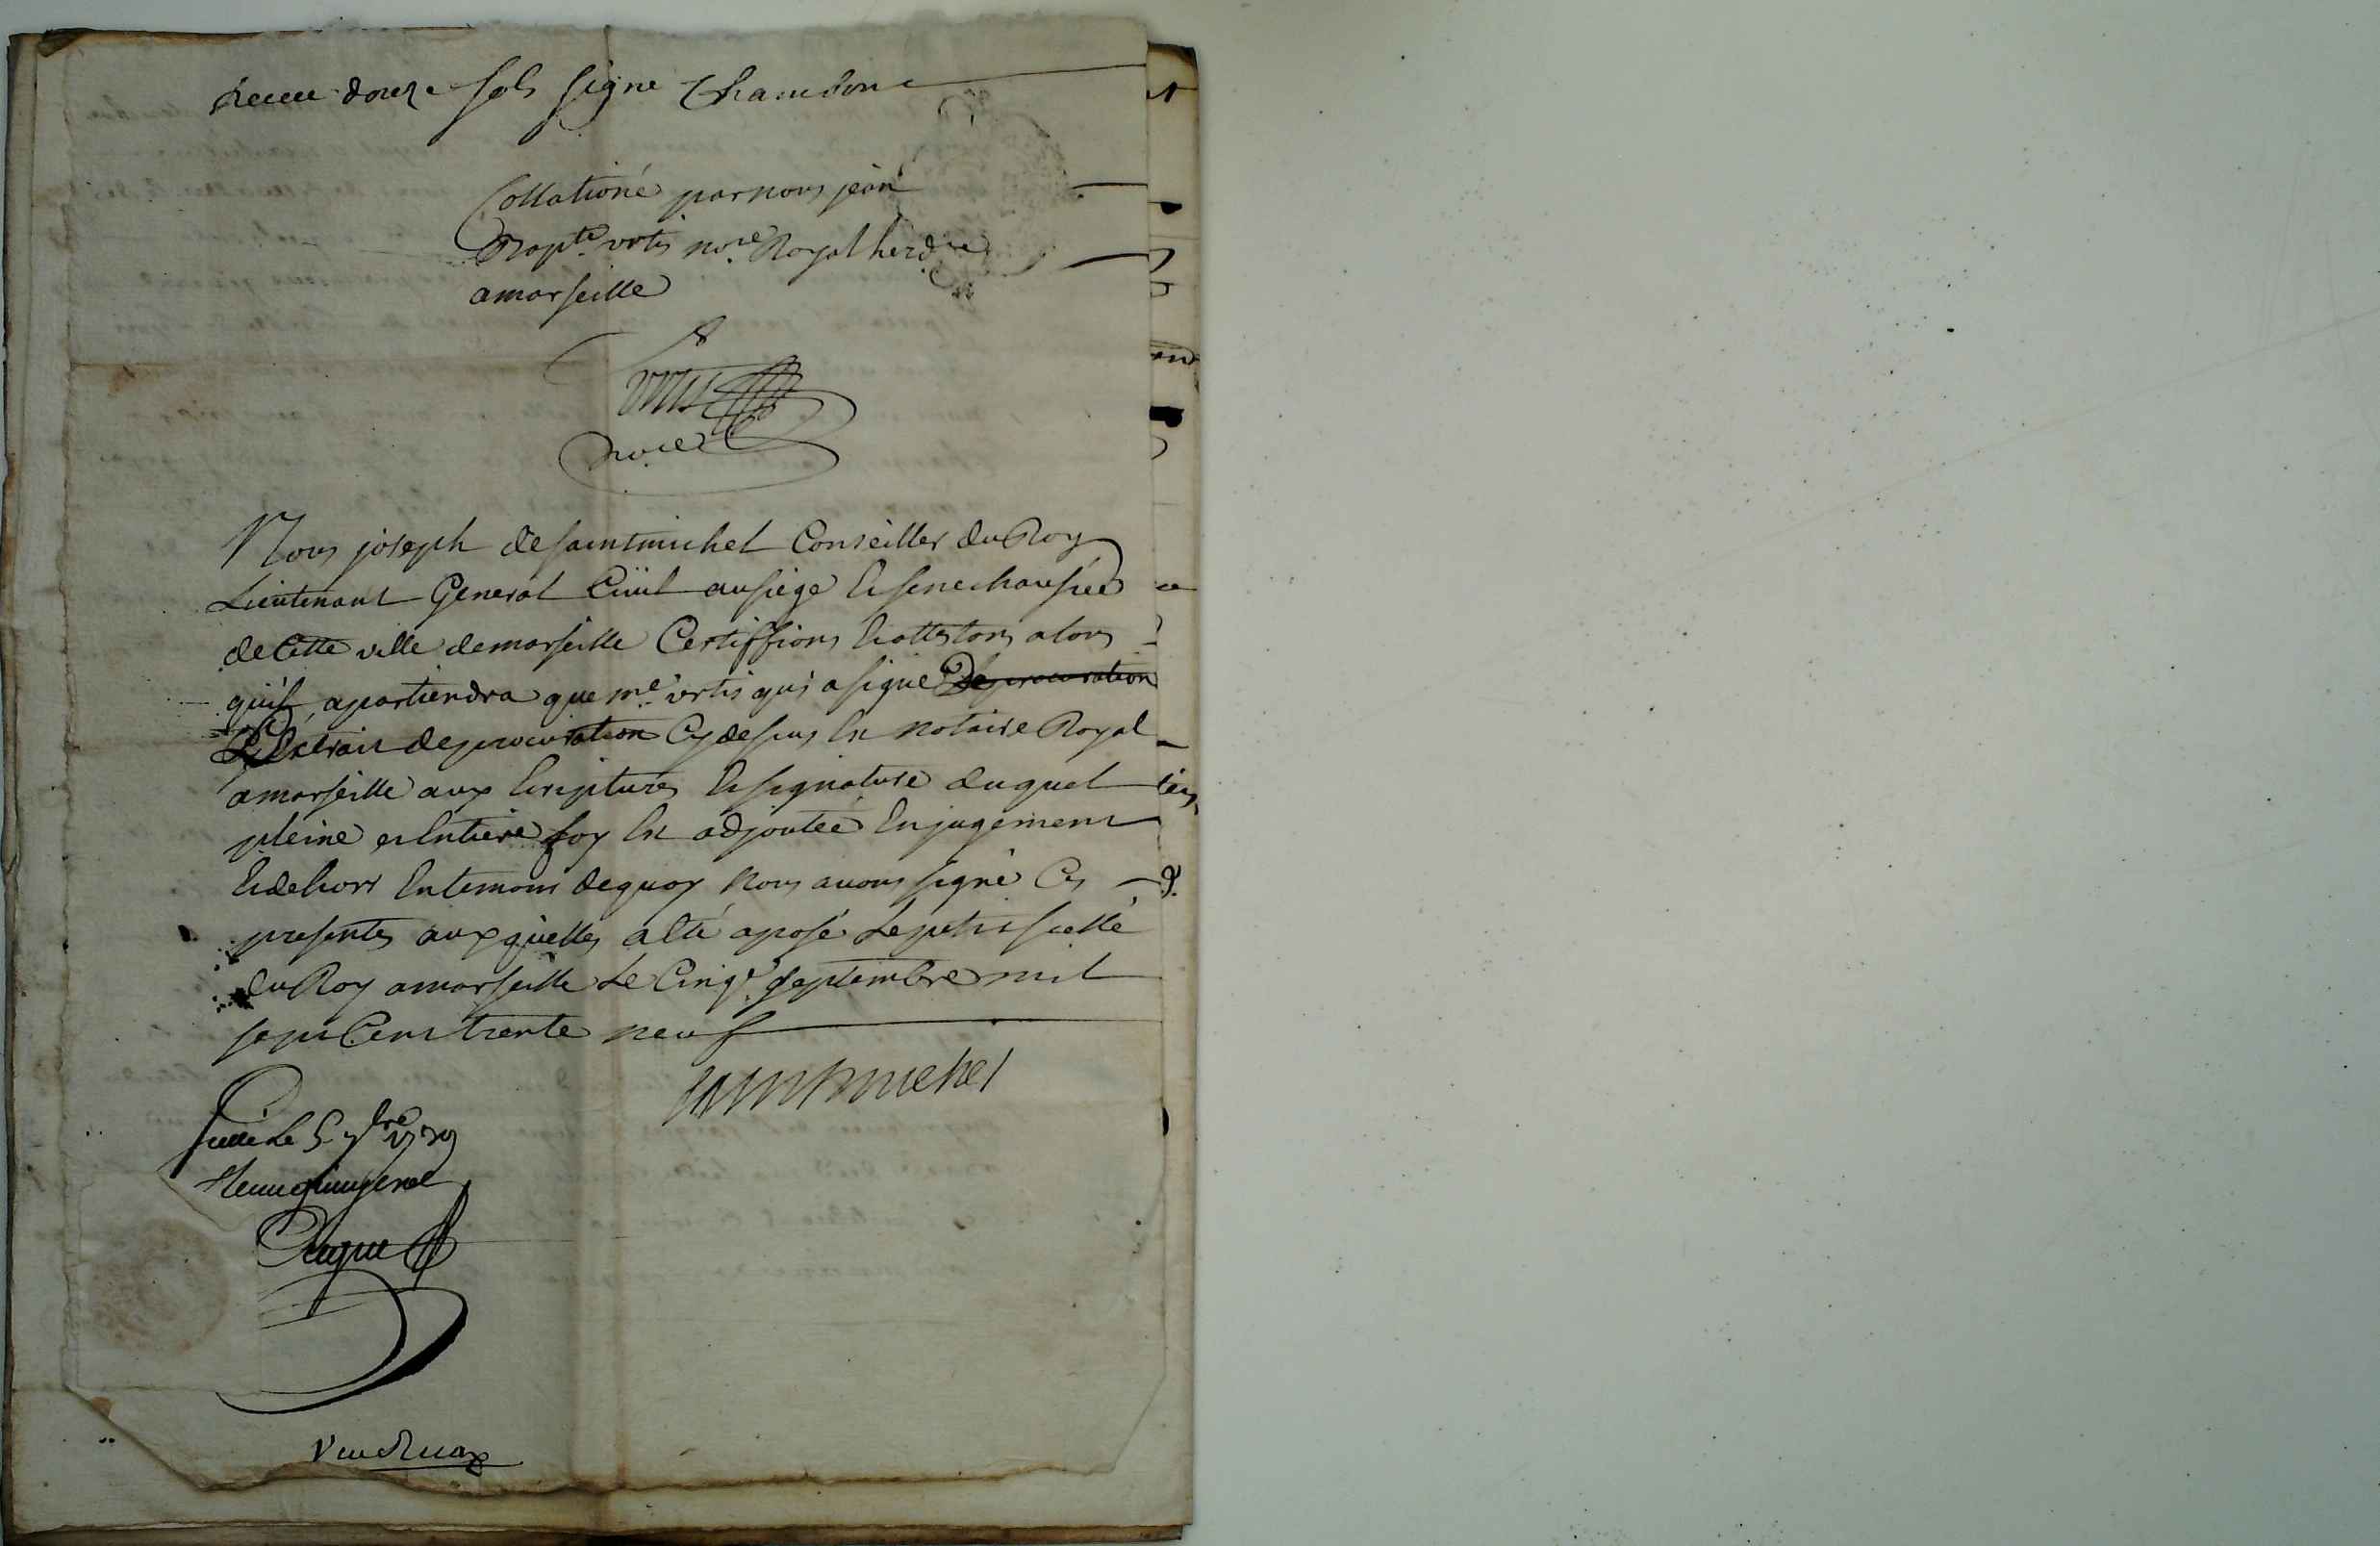 Receu douze sols signe Chambon
Collationé par nous jean
Bapte. urtis nore. Royal hered.re
a marseille
urtis
nore
Nous joseph de saintmichel Conseiller du Roy
Lieutenant General Ciuil au siege & senechaussée
de Cette ville de marseille Certiffions & attestons a tous
qu'il apartiendra que me. urtis qui a signé De procuration
L'Extrait de procuration Cy dessus est notaire Royal
a marseille aux Ecriptures & signature duquel
pleine et Entiere foy est adjoutée En jugement
& dehors En temoins de quoy nous auons signé Ces
presentes aux quelles a été aposé Le petit scellé
du Roy a marseille Le Cinqe. septembre mil
sept Cent trente neuf
saintmichel
scellé Le 5 7bre 1739